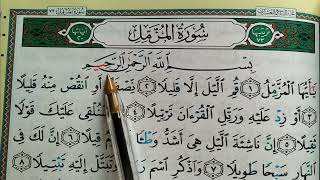 سُورَةُ الْمُزَّمِّلِ
بِسْمِ اللَّهِ الرَّحْمَٰنِ الرَّحِيمِ
يَٰٓأَيُّهَا الْمُزَّمِّلُ ١ قُمِ الَّيْلَ إِلَّا قَلِيلًا ٢ نِّصْفَهُۥٓ أَوِ انقُصْ مِنْهُ قَلِيلًا
٣ أَوْ زِدْ عَلَيْهِ وَرَتِّلِ الْقُرْءَانَ تَرْتِيلًا ٤ إِنَّا سَنُلْقِى عَلَيْكَ قَوْلًا
ثَقِيلًا ٥ إِنَّ نَاشِئَةَ الَّيْلِ هِىَ أَشَدُّ وَطْـًٔا وَأَقْوَمُ قِيلًا ٦ إِنَّ لَكَ فِى
النَّهَارِ سَبْحًا طَوِيلًا ٧ وَاذْكُرِ اسْمَ رَبِّكَ وَتَبَتَّلْ إِلَيْهِ تَبْتِيلًا ٨